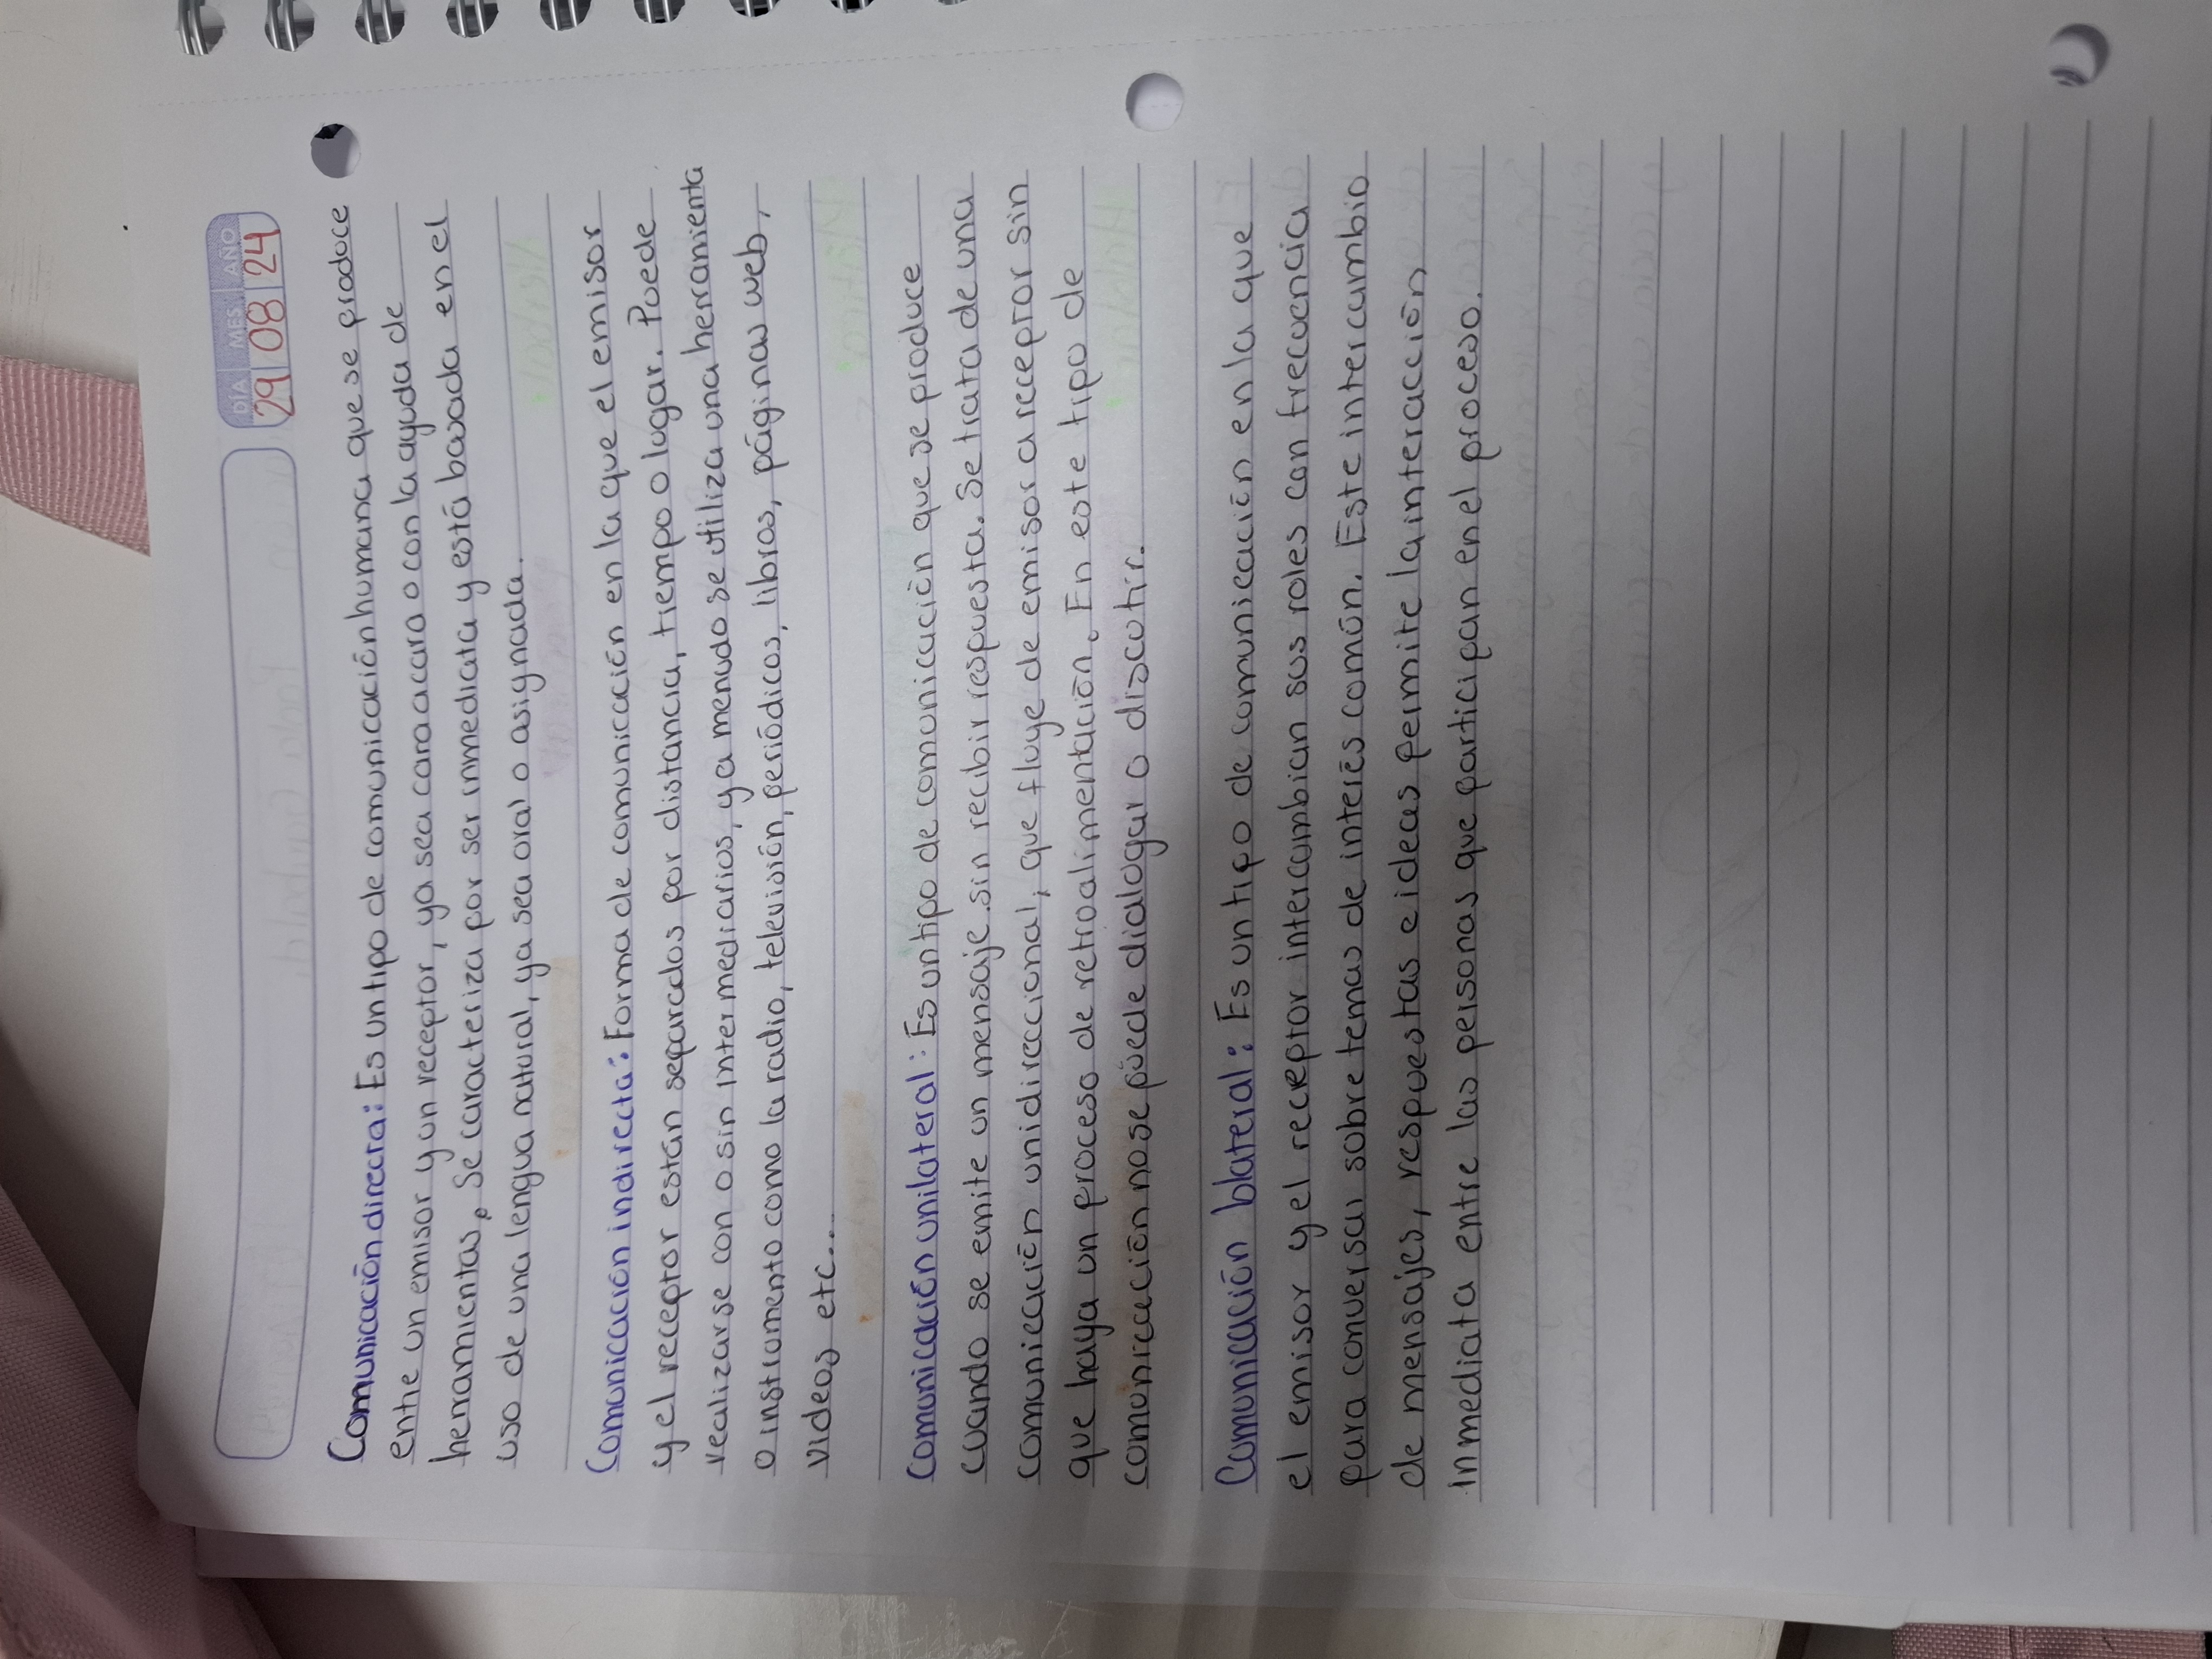 DÍA MES AÑO
29 08 24
Comunicación directa: Es un tipo de comunicación humana que se produce
entre un emisor y un receptor, ya sea cara a cara o con la ayuda de
herramientas. Se caracteriza por ser inmediata y está basada en el
uso de una lengua natural, ya sea oral o asignada.
Comunicación indirecta: Forma de comunicación en la que el emisor
y el receptor están separados por distancia, tiempo o lugar. Puede
realizarse con o sin intermediarios, y a menudo se utiliza una herramienta
o instrumento como la radio, televisión, periódicos, libros, páginas web,
videos etc...
Comunicación unilateral: Es un tipo de comunicación que se produce
cuando se emite un mensaje sin recibir respuesta. Se trata de una
comunicación unidireccional, que fluye de emisor a receptor sin
que haya un proceso de retroalimentación. En este tipo de
comunicación no se puede dialogar o discutir.
Comunicación blateral: Es un tipo de comunicación en la que
el emisor y el receptor intercambian sus roles con frecuencia
para conversar sobre temas de interés común. Este intercambio
de mensajes, respuestas e ideas permite la interacción
inmediata entre las personas que participan en el proceso.